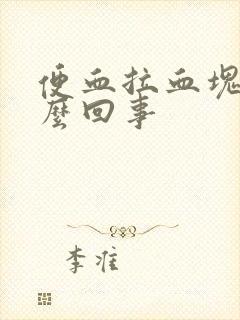 便血拉血塊
麼回事
李准